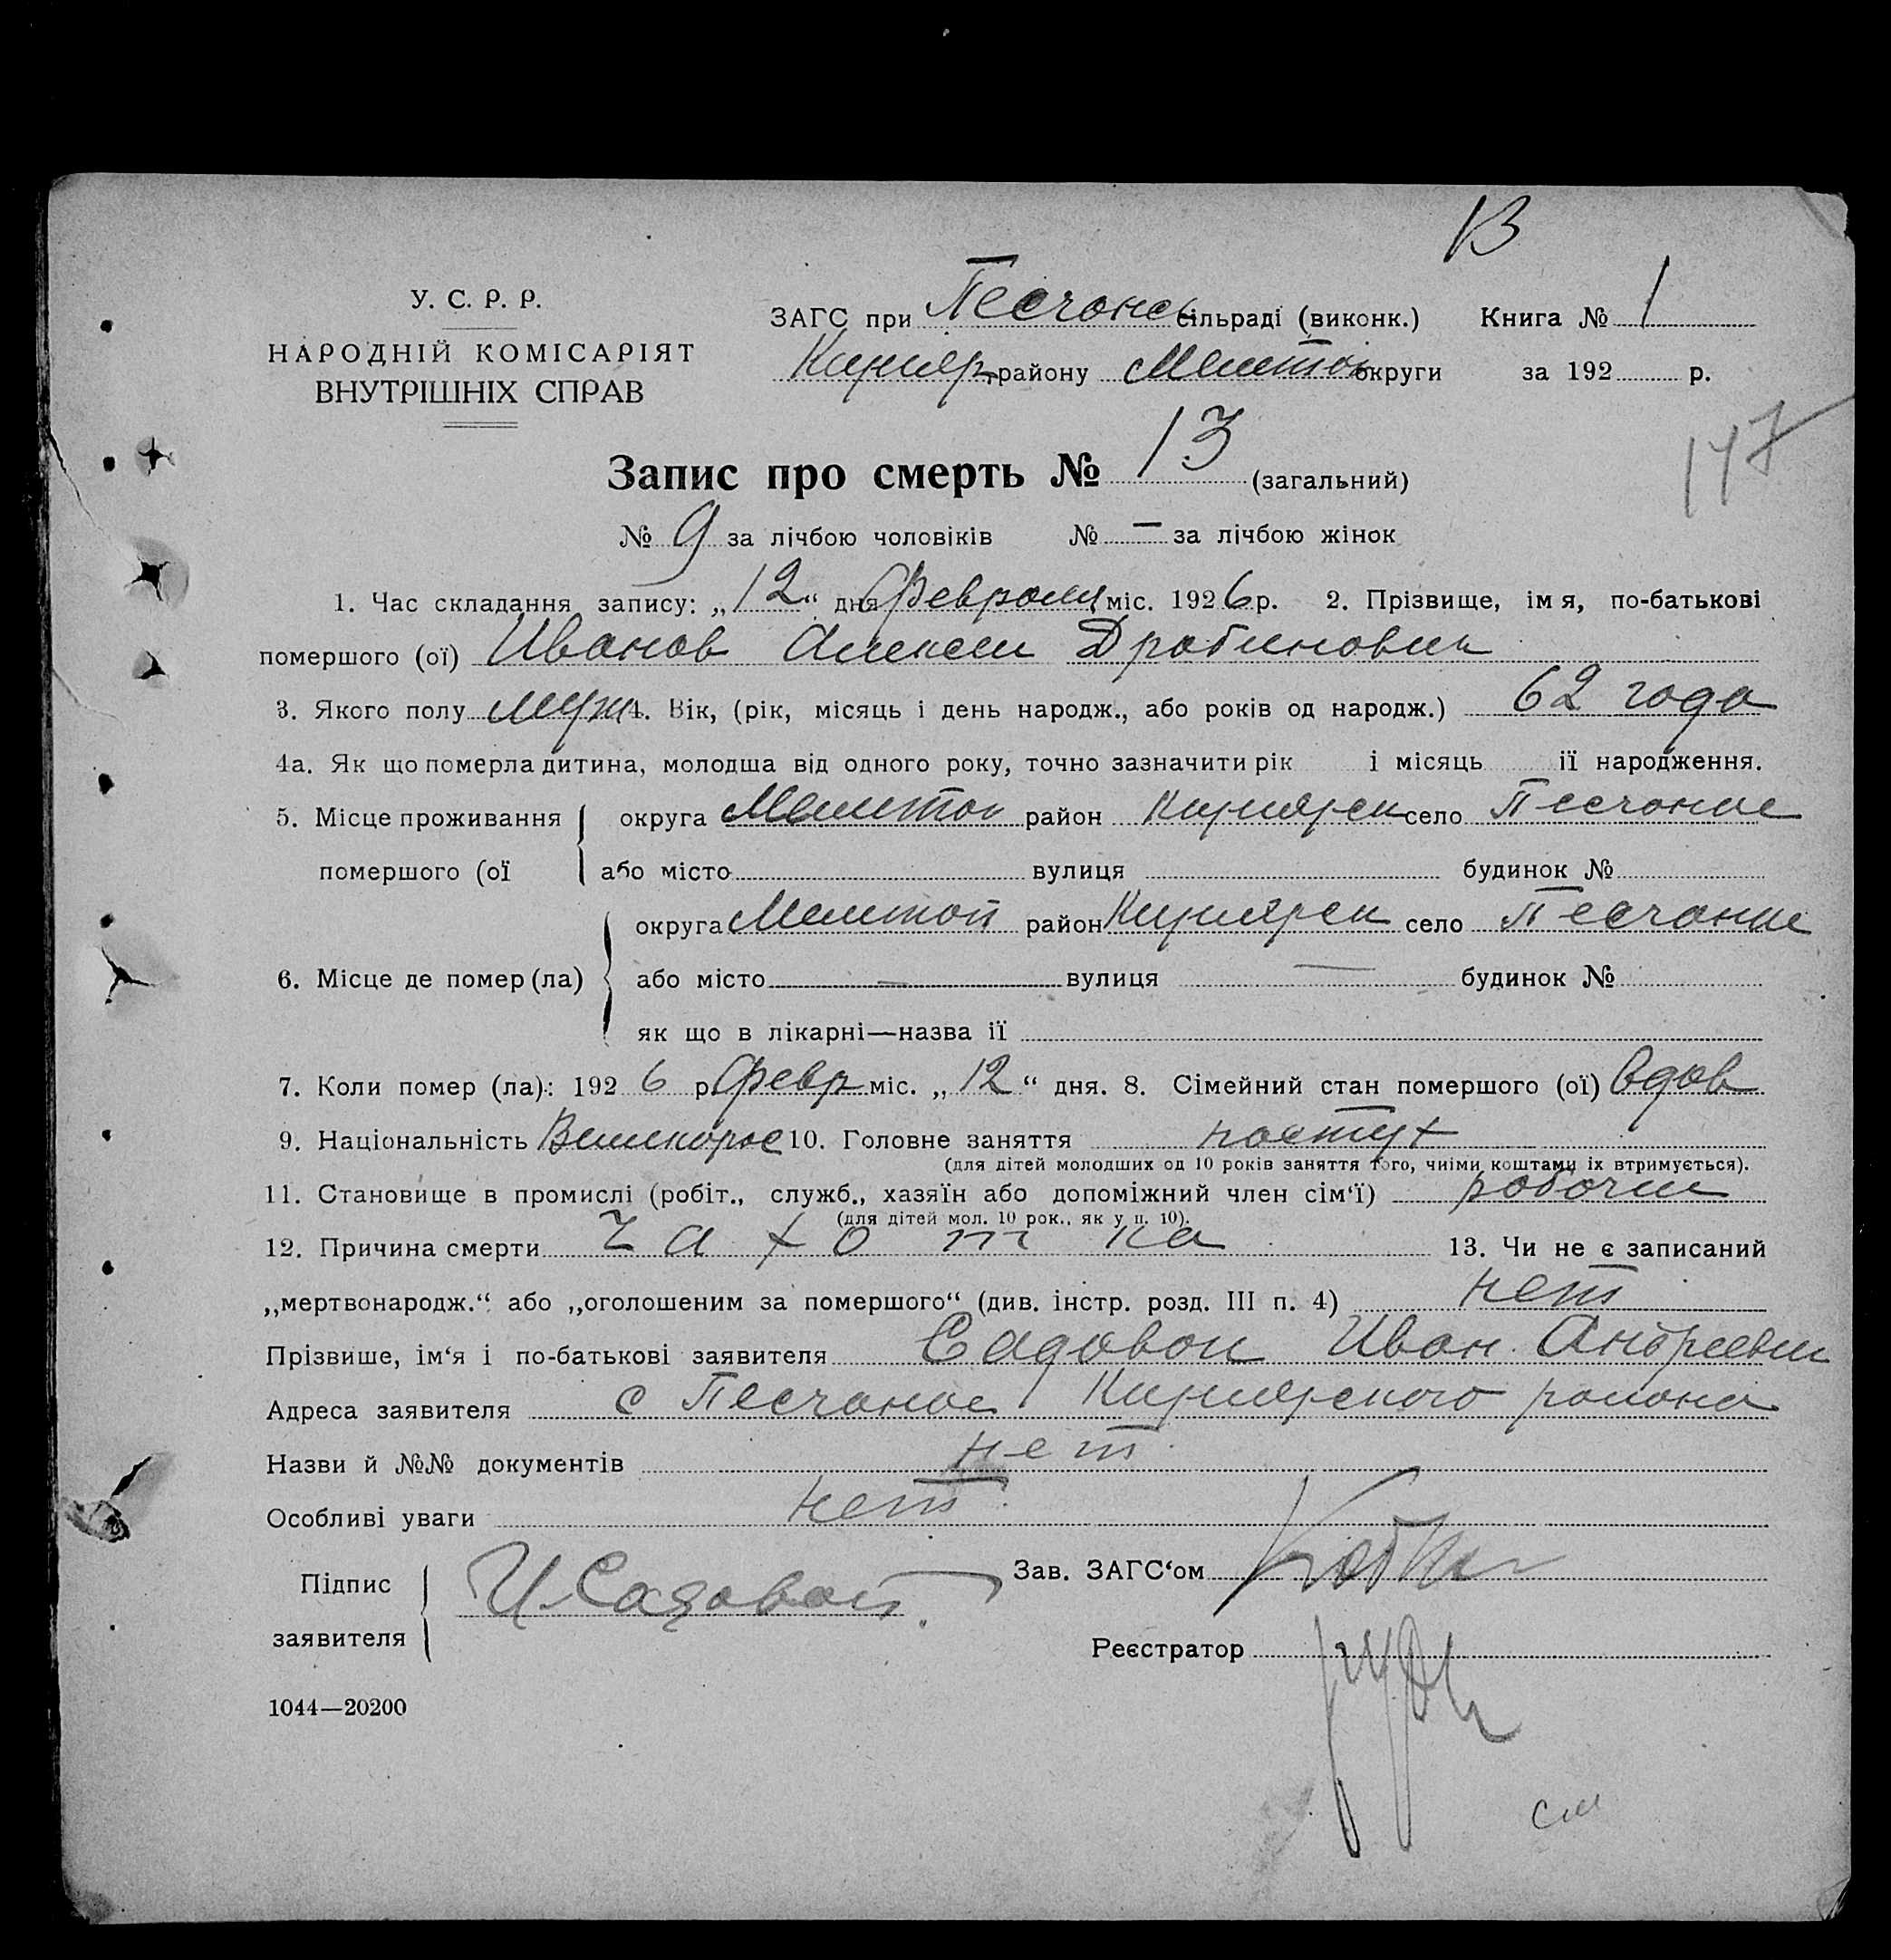 13
У. С. Р. Р.
НАРОДНІЙ КОМІСАРІЯТ
ВНУТРІШНІХ СПРАВ
ЗАГС при Песчанс сільраді (виконк.) Книга № 1
Кирияр району Мелитоп округи за 192 р.
147
Запис про смерть № 13 (загальний)
№ 9 за лічбою чоловіків № — за лічбою жінок
1. Час складання запису: „12“ дня Февраля міс. 1926 р. 2. Прізвище, імя, по-батькові
помершого (ої) Иванов Алексей
3. Якого полу муж 4. Вік, (рік, місяць і день народж., або років од народж.) 62 года
4а. Як що померла дитина, молодша від одного року, точно зазначити рік і місяць її народження.
5. Місце проживання помершого (ої округа Мелитоп район Кириярск село Песчаное
або місто вулиця будинок №
6. Місце де помер (ла) округа Мелитоп район Кириярск село Песчаное
або місто — вулиця — будинок №
як що в лікарні—назва її
7. Коли помер (ла): 1926 р. Февр міс. „12“ дня. 8. Сімейний стан помершого (ої) вдов
9. Національність Великорос 10. Головне заняття пастух
(для дітей молодших од 10 років заняття того, чиїми коштами їх втримується).
11. Становище в промислі (робіт., служб., хазяїн або допоміжний член сім‘ї) рабочий
(для дітей мол. 10 рок., як у п. 10).
12. Причина смерти чахотка 13. Чи не є записаний
„мертвонародж.“ або „оголошеним за помершого“ (див. інстр. розд. III п. 4) нет
Прізвише, ім‘я і по-батькові заявителя Садовой Иван Андреевич
Адреса заявителя с Песчаное Кириярского района
Назви й №№ документів нет
Особливі уваги нет
Підпис заявителя И Садовой Зав. ЗАГС‘ом
Реєстратор
1044—20200
см